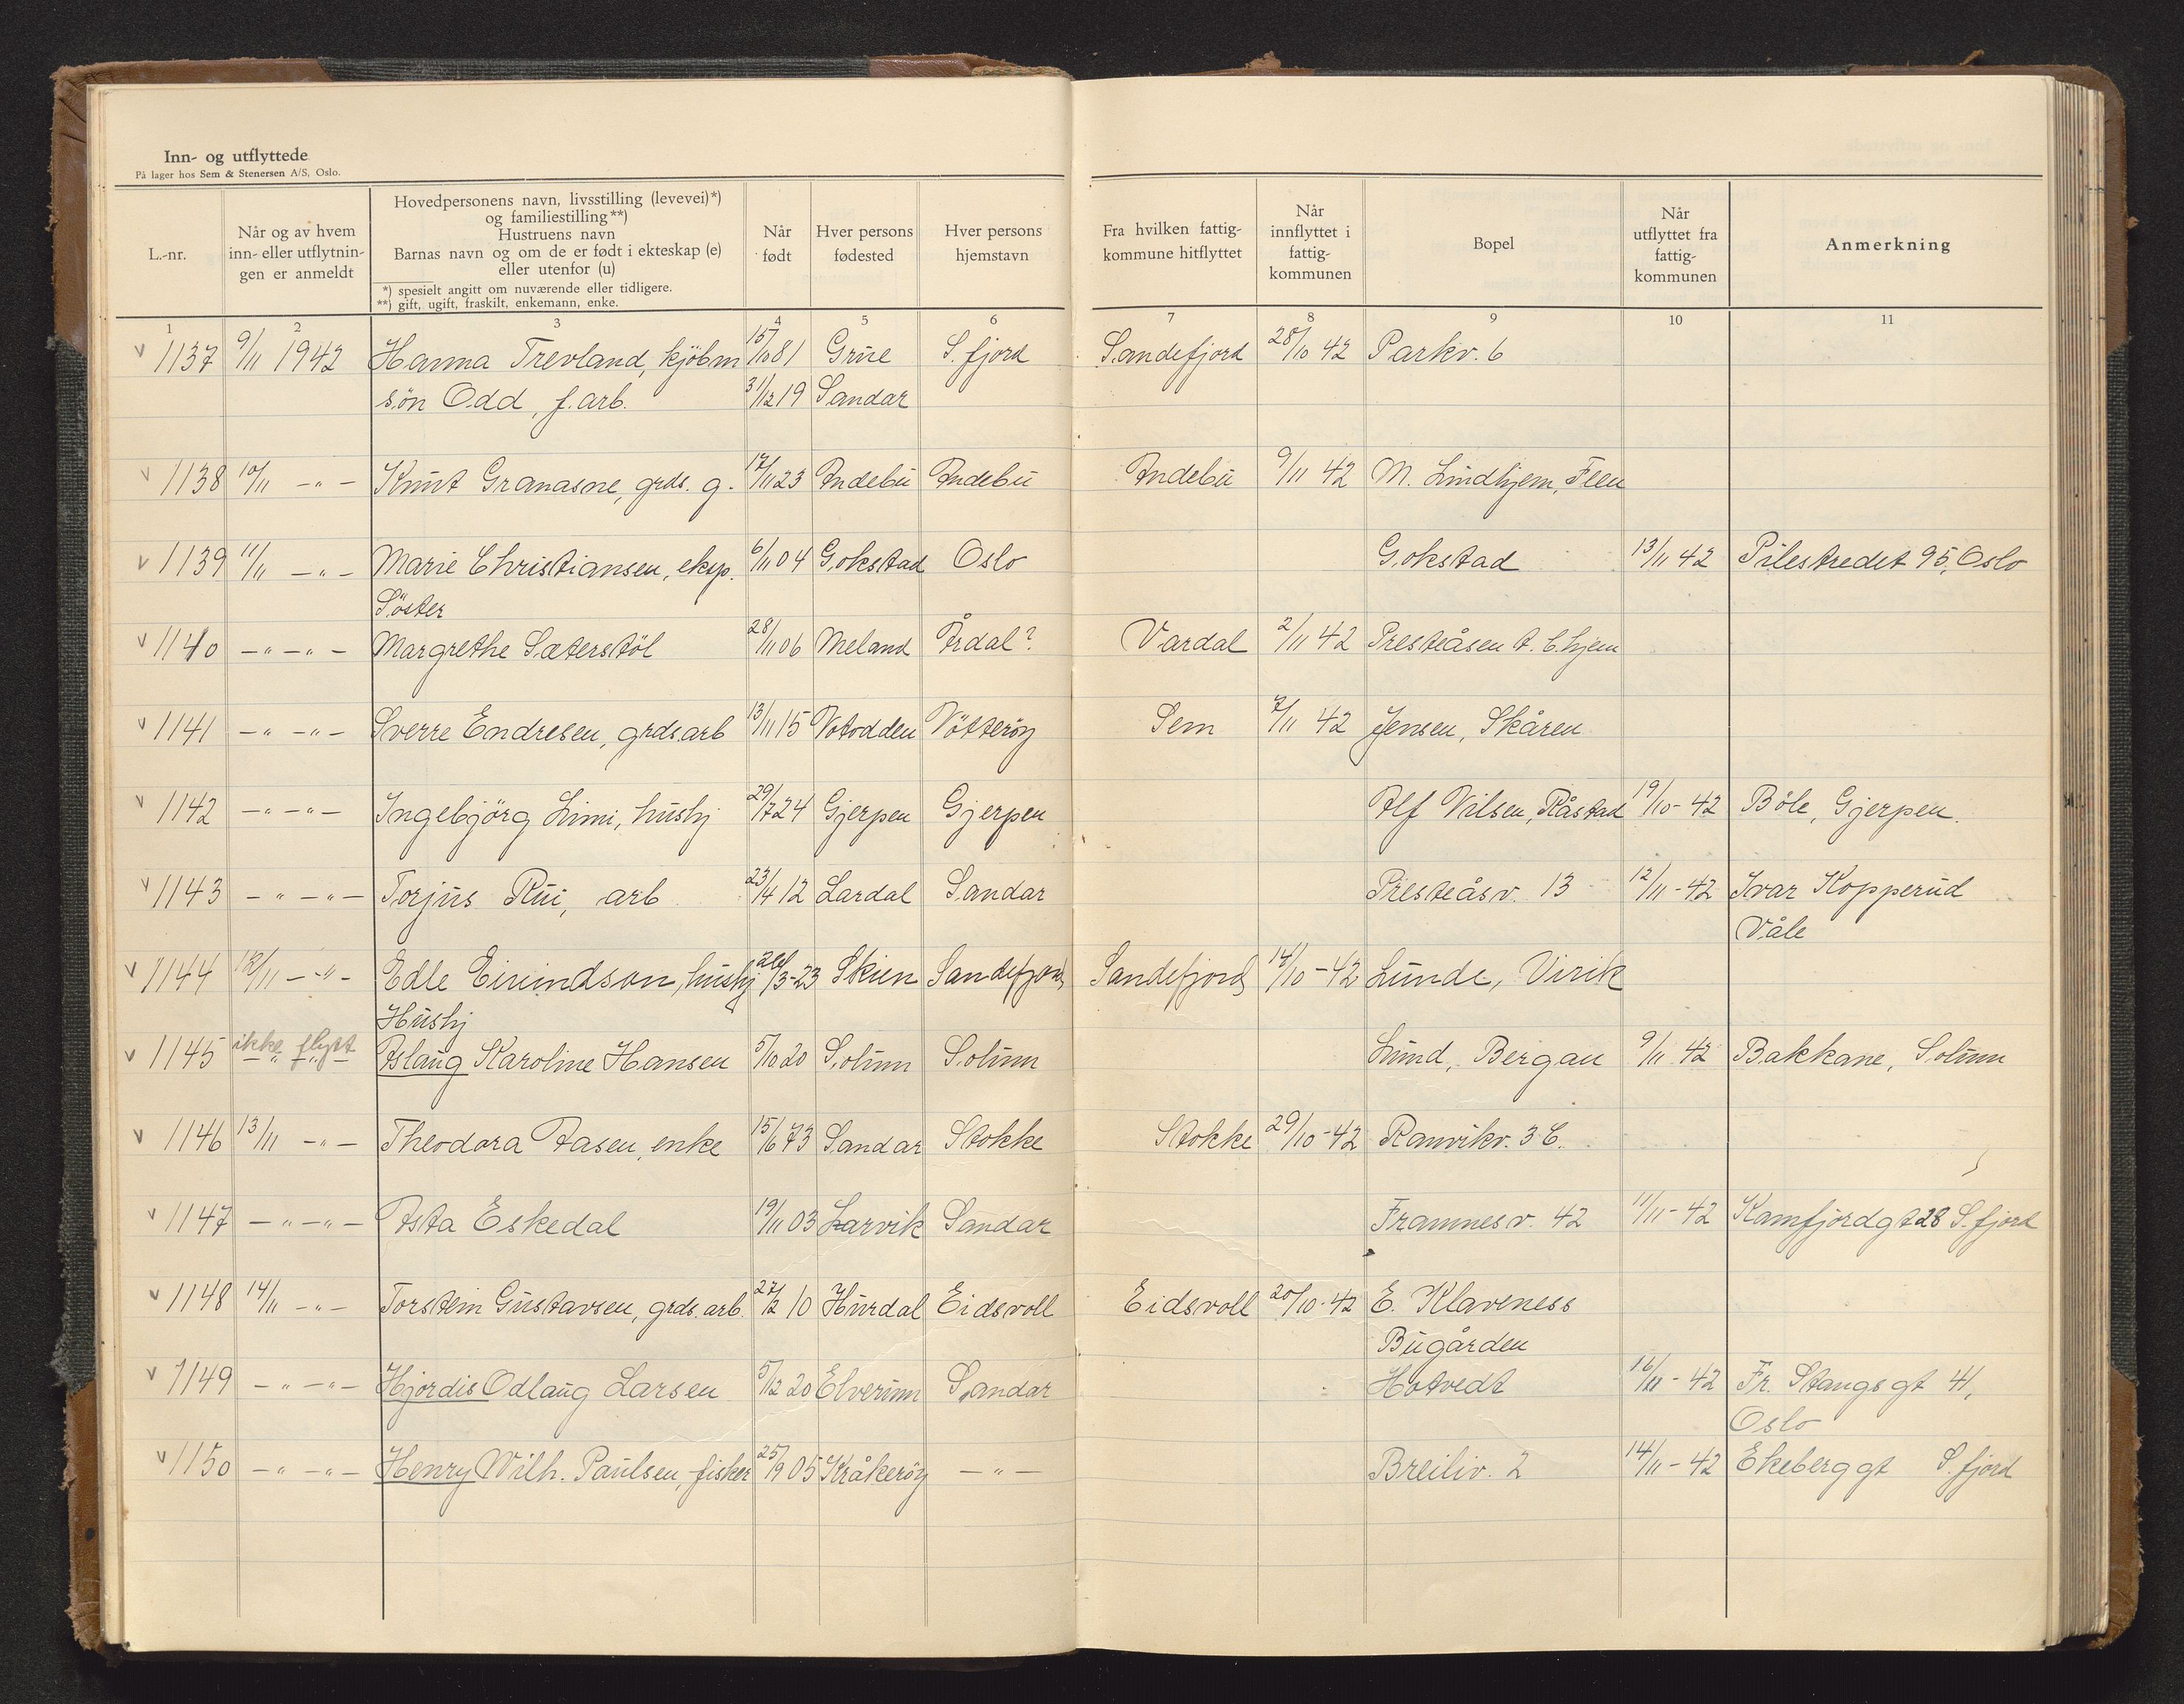 Inn- og utflyttede
På lager hos Sem & Stenersen A/S, Oslo.
L.-nr.
Når og av hvem inn- eller utflytnin- gen er anmeldt
Hovedpersonens navn, livsstilling (levevei)*)
og familiestilling**)
Hustruens navn
Barnas navn og om de er født i ekteskap (e)
eller utenfor (u)
*) spesielt angitt om nuværende eller tidligere.
**) gift, ugift, fraskilt, enkemann, enke.
Når født
Hver persons fødested
Hver persons hjemstavn
Fra hvilken fattig- kommune hitflyttet
Når innflyttet i fattig- kommunen
Bopel
Når utflyttet fra fattig- kommunen
Anmerkning
1 2 3 4 5 6 7 8 9 10 11
v 1137 9/11 1942 Hanna Trevland, kjöbm 15/10 81 Grue S.fjord Sandefjord 28/10 42 Parkv. 6
sön Odd, f.arb. 31/12 19 Sandar
v 1138 10/11 -"- Knut Granasne, grds. g. 17/11 23 Andebu Andebu Andebu 9/11 42 M. Lindhjem, Flen
v 1139 11/11 -"- Marie Christiansen, eksp. 6/11 04 Gokstad Oslo Gokstad 13/11 42 Pilestredet 95, Oslo
Söster
v 1140 -"-"- Margrethe Sæterstöl 28/11 06 Meland Årdal? Vardal 2/11 42 Presteåsen A. b.hjem
v 1141 -"-"- Sverre Endresen, grds.arb 13/11 15 Notodden Nötteröy Sem 7/11 42 Jensen, Skåren
v 1142 -"-"- Ingebjörg Limi, hushj 29/7 24 Gjerpen Gjerpen Alf Nilsen, Råstad 19/10-42 Böle, Gjerpen.
v 1143 -"-"- Torjus Rui, arb 23/4 12 Lardal Sandar Presteåsv. 13 12/11-42 Ivar Kopperud
Våle
v 1144 12/11 -"- Edle Eivindson, hushj 26/3-23 Skien Sandefjord Sandefjord 14/10-42 Lunde, Virik
Hushj
v 1145 -"-"- ikke flytt Aslaug Karoline Hansen 5/10 20 Solum Solum Lund, Bergan 9/11 42 Bakkane, Solum
v 1146 13/11 -"- Theodora Aasen, enke 15/6 73 Sandar Stokke Stokke 29/10-42 Ranvikv. 3 C.
v 1147 -"-"- Asta Eskedal 19/11 03 Larvik Sandar Framnesv. 42 11/11-42 Kamfjordgt 28 S.fjord
v 1148 14/11 -"- Torstein Gustavsen, grds. arb. 27/2 10 Hurdal Eidsvoll Eidsvoll 20/10-42 E. Klaveness
Bugården
v 1149 -"-"- Hjørdis Odlaug Larsen 5/12 20 Elverum Sandar Hotvedt 16/11-42 Fr. Stangs gt 41,
Oslo
v 1150 -"-"- Henry Wilh. Paulsen, fisker 25/9 05 Kråkeröy -"- Breiliv. 2 14/11-42 Ekeberggt S.fjord